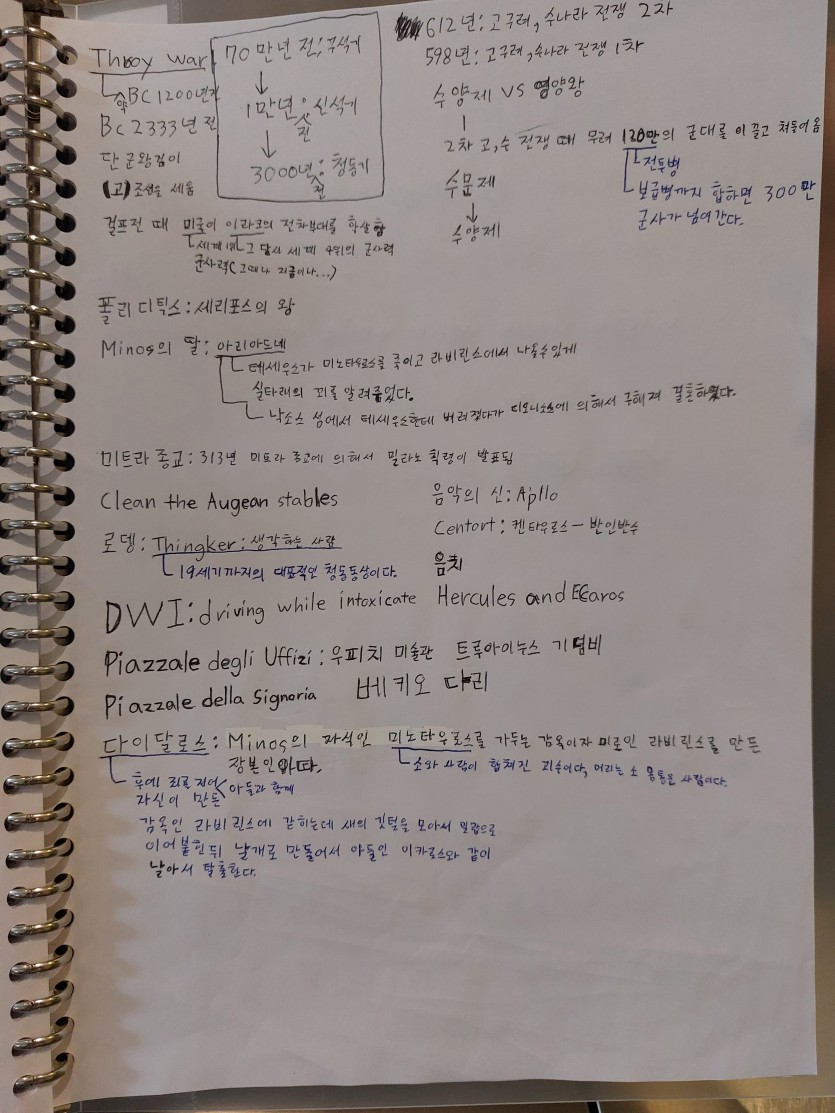 Throy war
약 BC 1200년전
BC 2333년 전
단군왕검이
(고)조선을 세움
70만년 전: 구석기
↓
1만년전: 신석기
↓
3000년전: 청동기
612년: 고구려, 수나라 전쟁 2차
598년: 고구려, 수나라 전쟁 1차
수양제 VS 영양왕
2차 고,수 전쟁 때 무려 120만의 군대를 이끌고 쳐들어옴
전투병
보급병까지 합하면 300만
군사가 넘어간다.
수문제
↓
수양제
걸프전 때 미국이 이라크의 전차부대를 학살함
세계 1위 그 당시 세계 4위의 군사력
군사력(그때나 지금이나...)
폴리디틱스: 세리포스의 왕
Minos의 딸: 아리아드네
테세우스가 미노타우로스를 죽이고 라비린스에서 나올수있게
실타래의 꾀를 알려주었다.
낙소스 섬에서 테세우스한테 버려졌다가 디오니소스에 의해서 구해져 결혼하였다.
미트라 종교: 313년 미트라 종교에 의해서 밀라노 칙령이 발표됨
Clean the Augean stables
음악의 신: Apllo
Centort: 켄타우로스 - 반인반수
로뎅: Thingker: 생각하는 사람
19세기까지의 대표적인 청동동상이다.
음치
DWI: driving while intoxicate
Hercules and ECaros
Piazzale degli Uffizi: 우피치 미술관
트루아이누스 기념비
Piazzale della Signoria
베키오 다리
다이달로스: Minos의 자식인 미노타우로스를 가두는 감옥이자 미로인 라비린스를 만든
장본인이다.
소와 사람이 합쳐진 괴수이다, 머리는 소 몸통은 사람이다.
후에 죄를 지어 아들과 함께
자신이 만든
감옥인 라비린스에 갇히는데 새의 깃털을 모아서 밀랍으로
이어붙힌뒤 날개로 만들어서 아들인 이카로스와 같이
날아서 탈출한다.